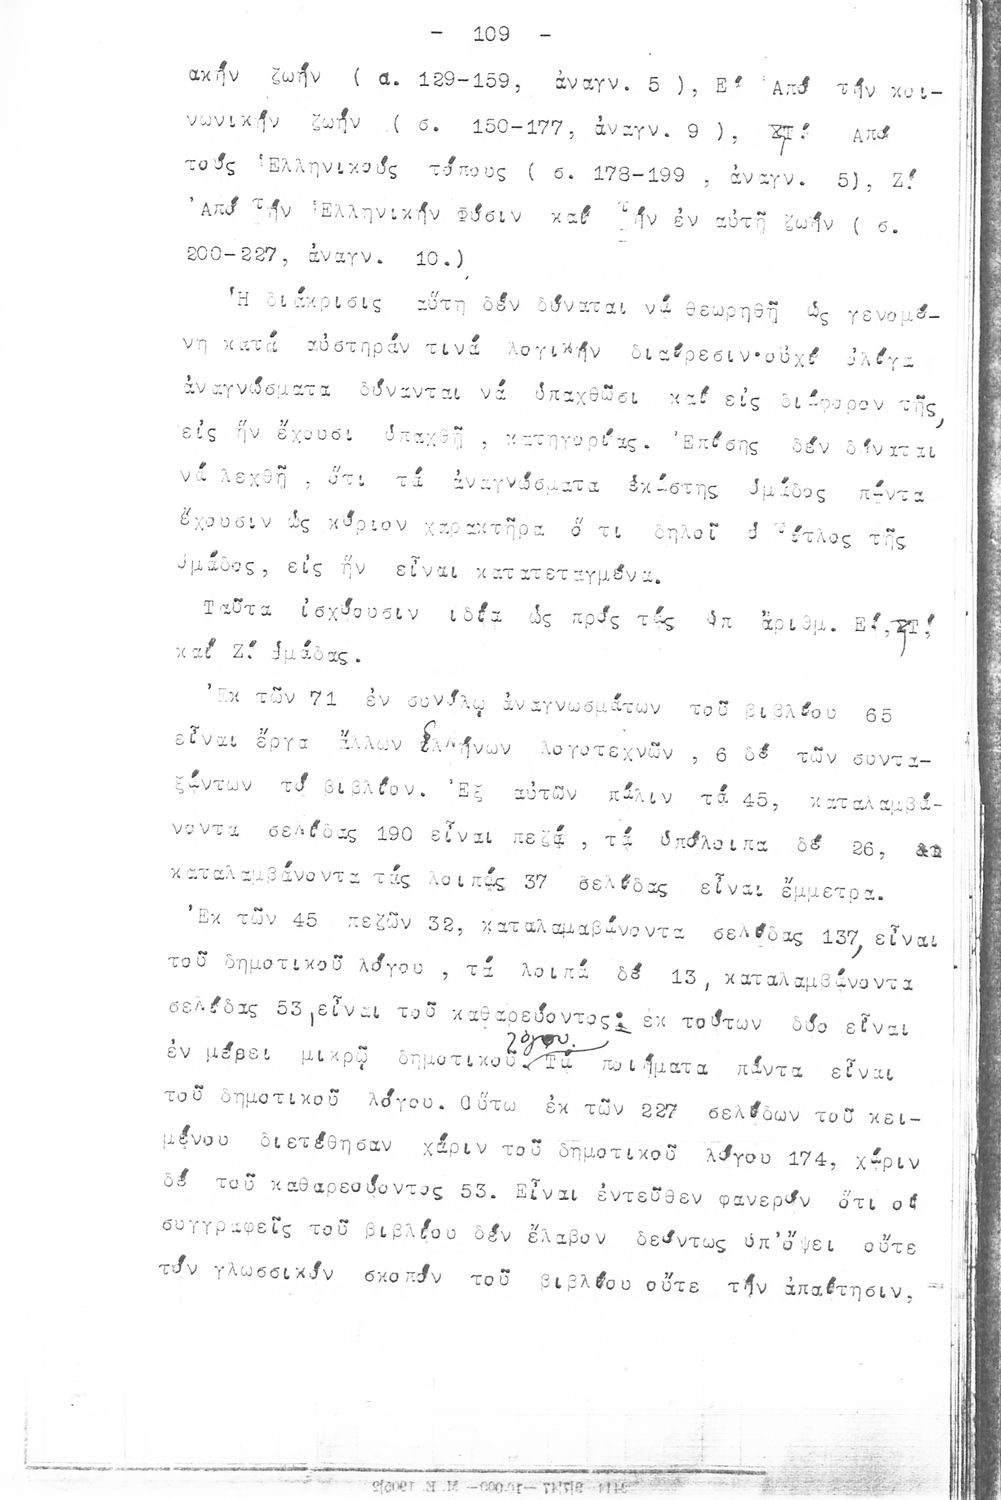 - 109 -
ακήν ζωήν ( σ. 129-159, ἀναγν. 5 ), Ε! Ἀπό τήν κοι-
νωνικήν ζωήν ( σ. 150-177, ἀναγν. 9 ), ΣΤ! Ἀπό
τούς Ἑλληνικούς τόπους ( σ. 178-199 , ἀναγν. 5), Ζ!
Ἀπό τήν Ἑλληνικήν Φύσιν καί τήν ἐν αὐτῇ ζωήν ( σ.
200-227, ἀναγν. 10.)
Ἡ διάκρισις αὕτη δέν δύναται νά θεωρηθῇ ὡς γενομέ-
νη κατά αὐστηράν τινά λογικήν διαίρεσιν·οὐχί ὀλίγα
ἀναγνώσματα δύνανται νά ὑπαχθῶσι καί εἰς διάφορον τῆς,
εἰς ἥν ἔχουσι ὑπαχθῆ , κατηγορίας. Ἐπίσης δέν δύναται
νά λεχθῇ , ὅτι τά ἀναγνώσματα ἑκάστης ὁμάδος πάντα
ἔχουσιν ὡς κύριον χαρακτῆρα ὅ τι δηλοῖ ὁ τίτλος τῆς
ὁμάδος, εἰς ἥν εἶναι κατατεταγμένα.
Ταῦτα ἰσχύουσιν ιδίᾳ ὡς πρός τάς ὑπ ἀριθμ. Ε!,ΣΤ!
καί Ζ! ὁμάδας.
Ἐκ τῶν 71 ἐν συνόλῳ ἀναγνωσμάτων τοῦ βιβλίου 65
εἶναι ἔργα ἄλλων ἑλλήνων λογοτεχνῶν , 6 δέ τῶν συντα-
ξάντων τό βιβλίον. Ἐξ αὐτῶν πάλιν τά 45, καταλαμβά-
νοντα σελίδας 190 εἶναι πεζά , τά ὑπόλοιπα δέ 26,
καταλαμβάνοντα τάς λοιπάς 37 σελίδας εἶναι ἔμμετρα.
Ἐκ τῶν 45 πεζῶν 32, καταλαμαβάνοντα σελίδας 137, εἶναι
τοῦ δημοτικοῦ λόγου , τά λοιπά δέ 13, καταλαμβάνοντα
σελίδας 53,εἶναι τοῦ καθαρεύοντος· ἐκ τούτων δύο εἶναι
λόγου.
ἐν μέρει μικρῷ δημοτικοῦ. Τά ποιήματα πάντα εἶναι
τοῦ δημοτικοῦ λόγου. Οὕτω ἐκ τῶν 227 σελίδων τοῦ κει-
μένου διετέθησαν χάριν τοῦ δημοτικοῦ λόγου 174, χάριν
δέ τοῦ καθαρεύοντος 53. Εἶναι ἐντεῦθεν φανερόν ὅτι οἱ
συγγραφεῖς τοῦ βιβλίου δέν ἔλαβον δεόντως ὑπ'ὄψει οὔτε
τόν γλωσσικόν σκοπόν τοῦ βιβλίου οὔτε τήν ἀπαίτησιν,